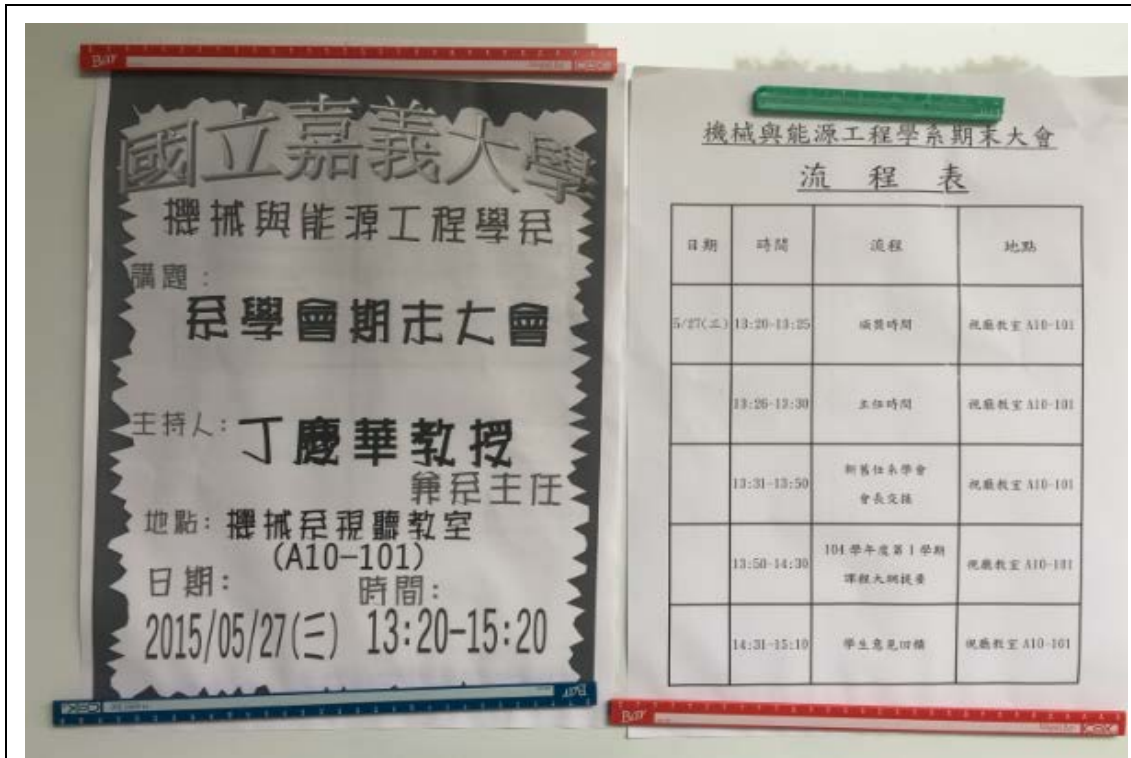 國立嘉義大學
機械與能源工程學系
講題：
系學會期末大會
主持人：丁慶華教授
兼系主任
地點：機械系視聽教室
(A10-101)
日期：
時間：
2015/05/27(三) 13:20-15:20
機械與能源工程學系期末大會
流 程 表
日期 時間 流程 地點
5/27(三) 13:20-13:25 頒獎時間 視廳教室 A10-101
13:26-13:30 主任時間 視廳教室 A10-101
13:31-13:50 新舊任系學會
會長交接 視廳教室 A10-101
13:50-14:30 104 學年度第 1 學期
課程大綱提要 視廳教室 A10-101
14:31-15:10 學生意見回饋 視廳教室 A10-101